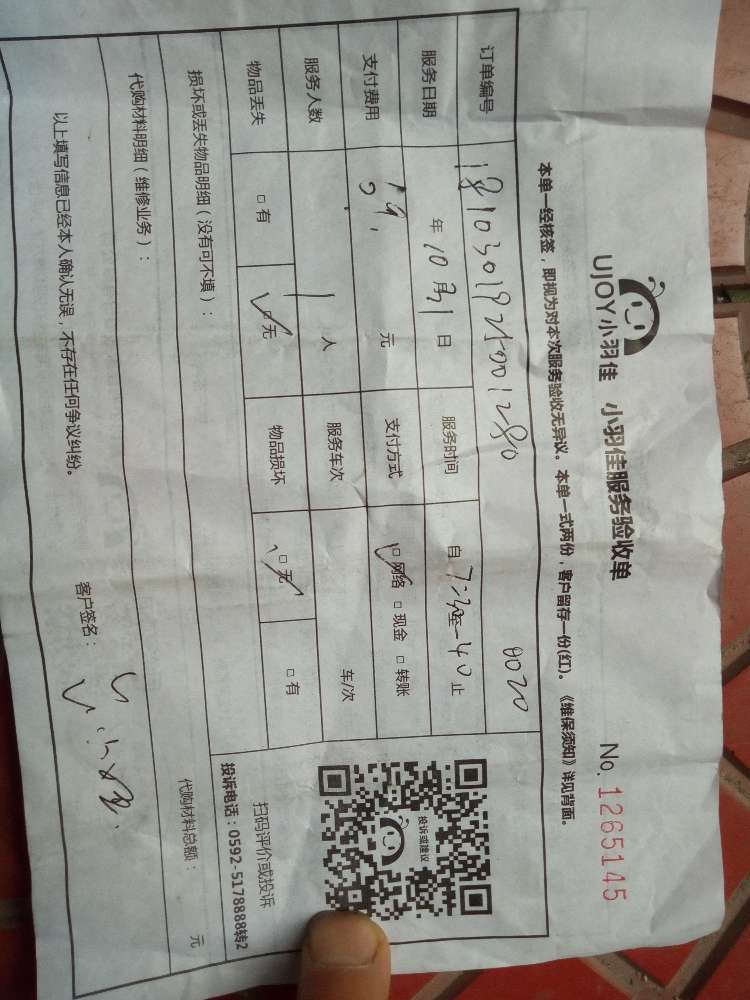 UJOY小羽佳 小羽佳服务验收单
No. 1265145
本单一经核签，即视为对本次服务验收无异议。本单一式两份，客户留存一份(红)。《维保须知》详见背面。
订单编号 0020
服务日期 年 10月31日 服务时间 自 止
支付费用 元 支付方式 网络 现金 转账
服务人数 1人 服务车次 车/次
物品丢失 有 无 物品损坏 无 有
损坏或丢失物品明细（没有可不填）：
代购材料明细（维修业务）：
代购材料总额： 元
以上填写信息已经本人确认无误，不存在任何争议纠纷。
客户签名：
投诉或建议
扫码评价或投诉
投诉电话：0592-5178888转2